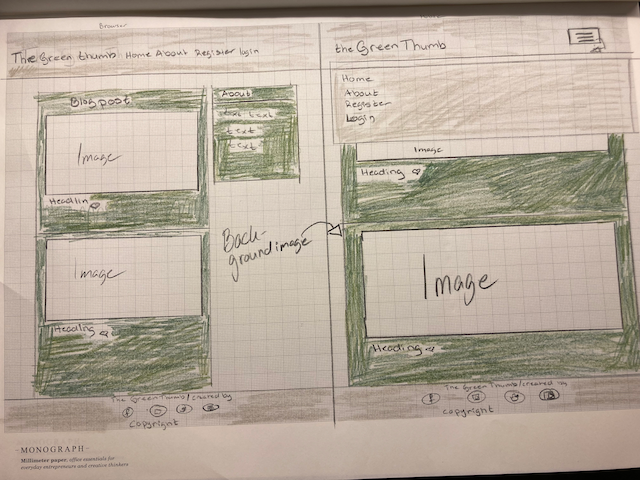 Browser
The Green thumb Home About Register login
Blog post
Image
Headlin
Image
Heading
About
text text
text
text
Back-
ground image
The Green Thumb/created by
copyright
the Green Thumb
Home
About
Register
Login
Image
Heading
Image
Heading
The Green Thumb/created by
copyright
MONOGRAPH
Millimeter paper, office essentials for
everyday entrepreneurs and creative thinkers